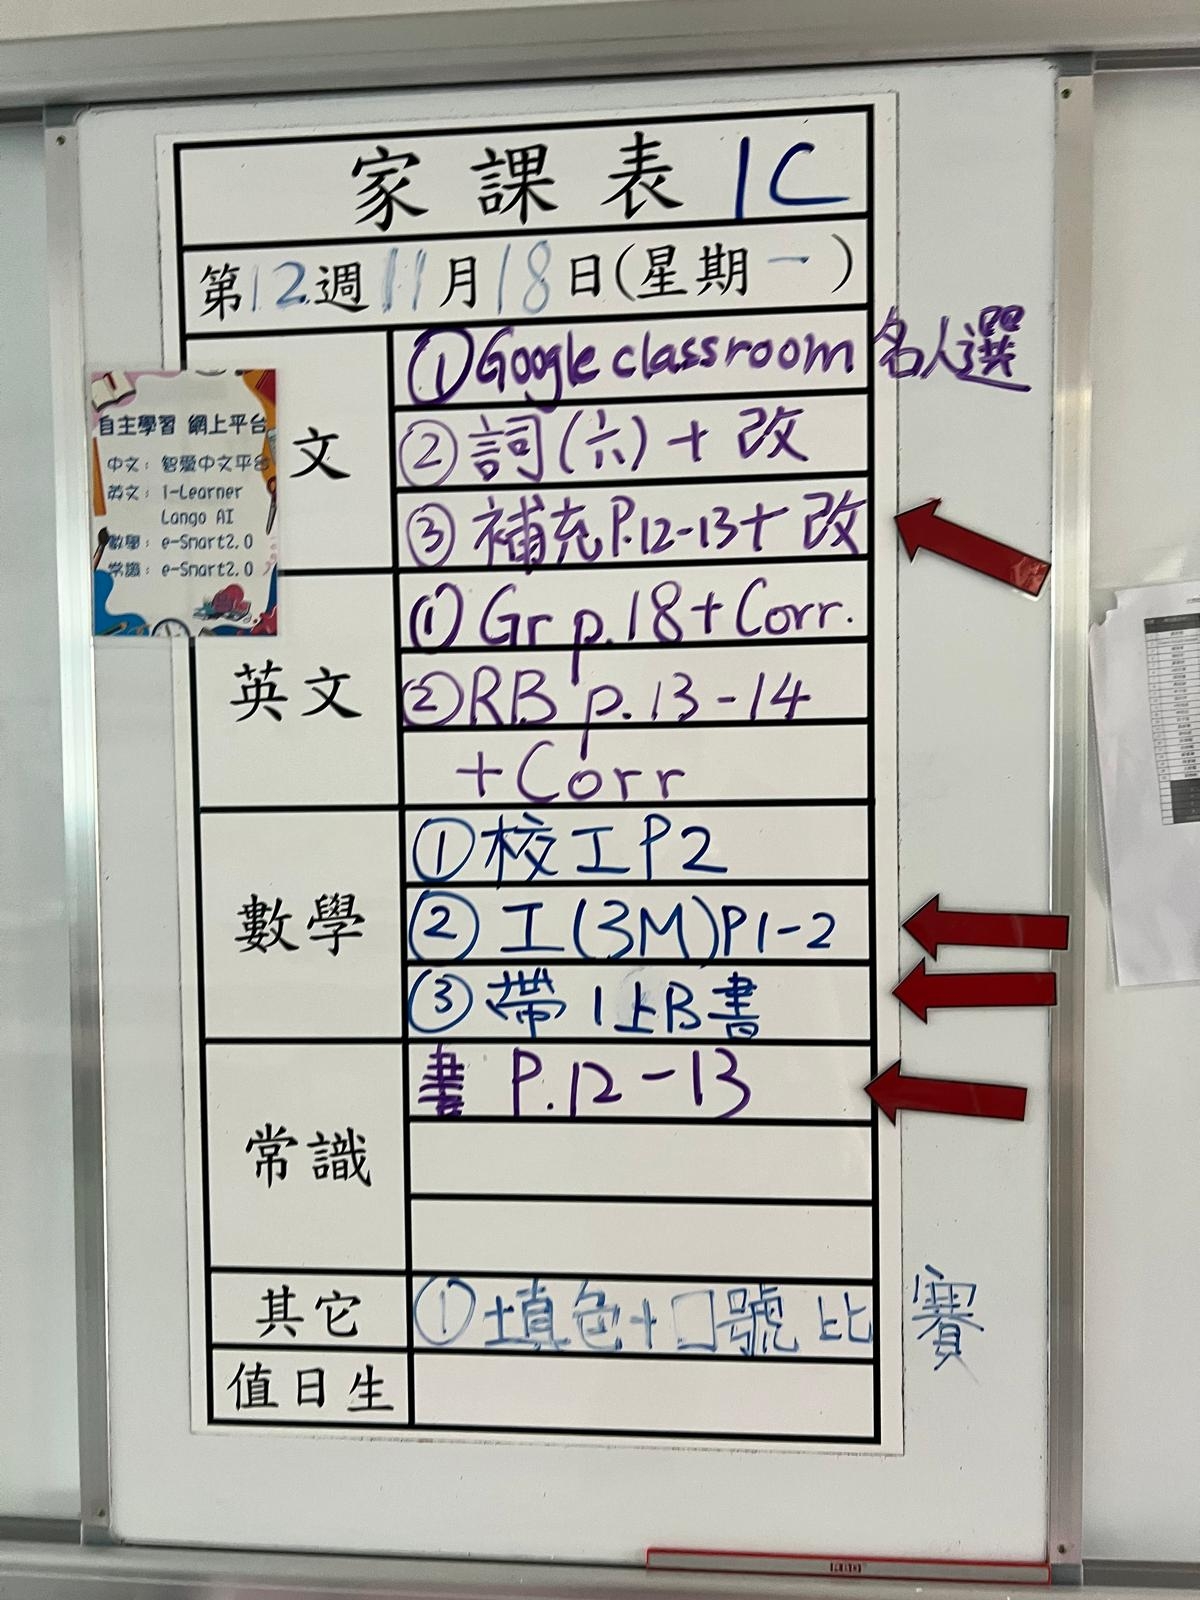 家課表 1C
第12週11月18日(星期一)
自主學習 網上平台
中文：智愛中文平台
英文：i-Learner
Lango AI
數學：e-Smart2.0
常識：e-Smart2.0
文
①Google classroom 名人選
②詞(六)+改
③補充P.12-13+改
英文
①Gr p.18+Corr.
②RB p.13-14
+Corr
數學
①校工P2
②工(3M)P1-2
③帶1上B書
常識
書 P.12-13
其它
①填色+口號比賽
值日生